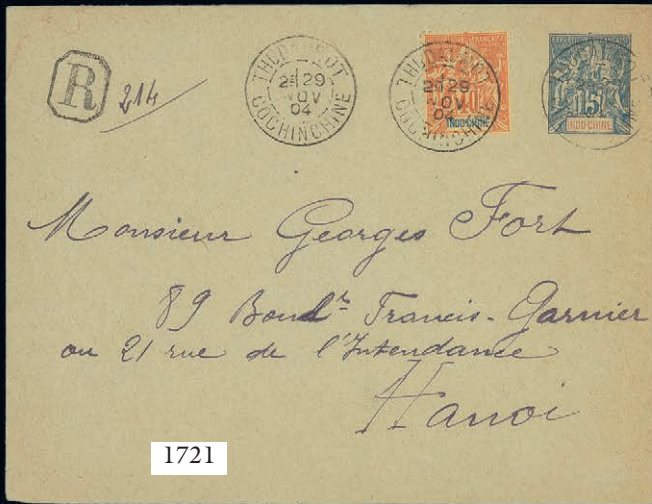 R 214
THUDAUMOT
2E 29
NOV
04
COCHINCHINE
THUDAUMOT
2E 29
NOV
04
COCHINCHINE
40
INDO-CHINE
15
INDO-CHINE
Monsieur Georges Fort
89 Boulr Francis-Garnier
ou 21 rue de l'Intendance
Hanoi
1721